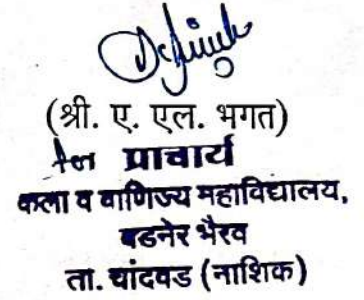 (श्री. ए. एल. भगत)
प्राचार्य
कला व वाणिज्य महाविद्यालय,
वडनेर भैरव
ता. चांदवड (नाशिक)